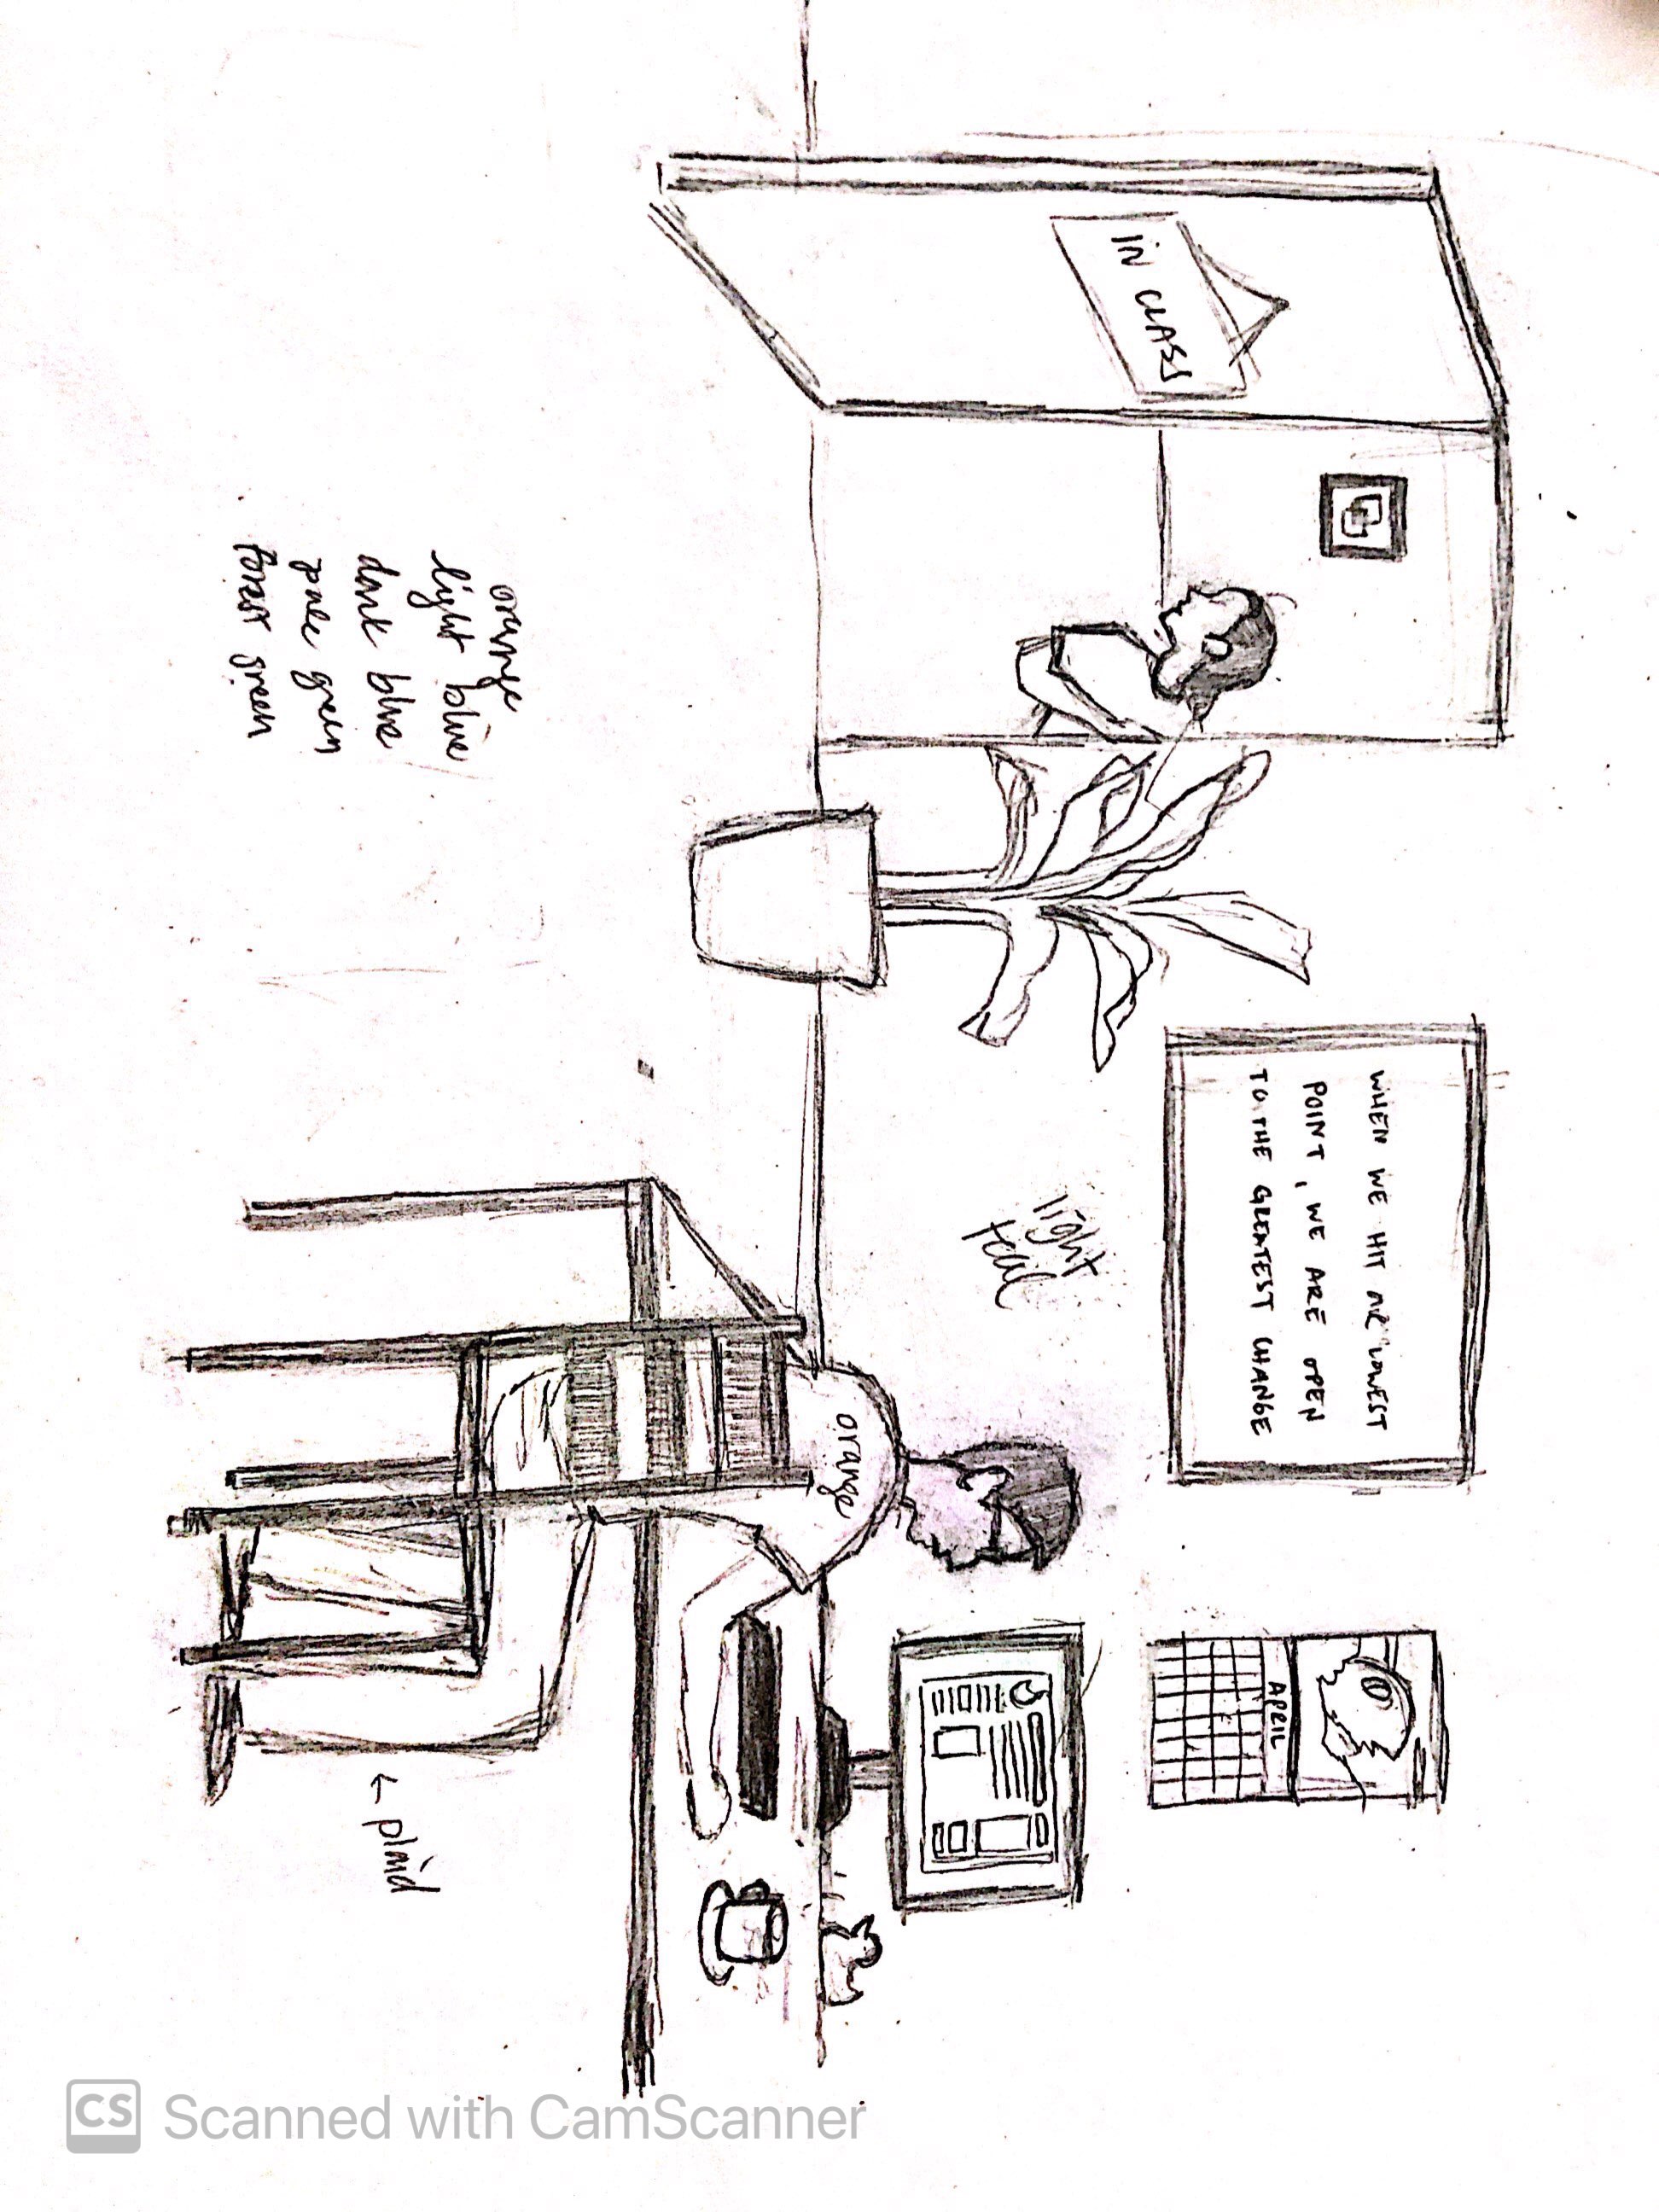 WHEN WE HIT OUR LOWEST
POINT, WE ARE OPEN
TO THE GREATEST CHANGE
APRIL
IN CLASS
light
teal
orange
orange
light blue
dark blue
pale green
forest green
← plaid
CS Scanned with CamScanner